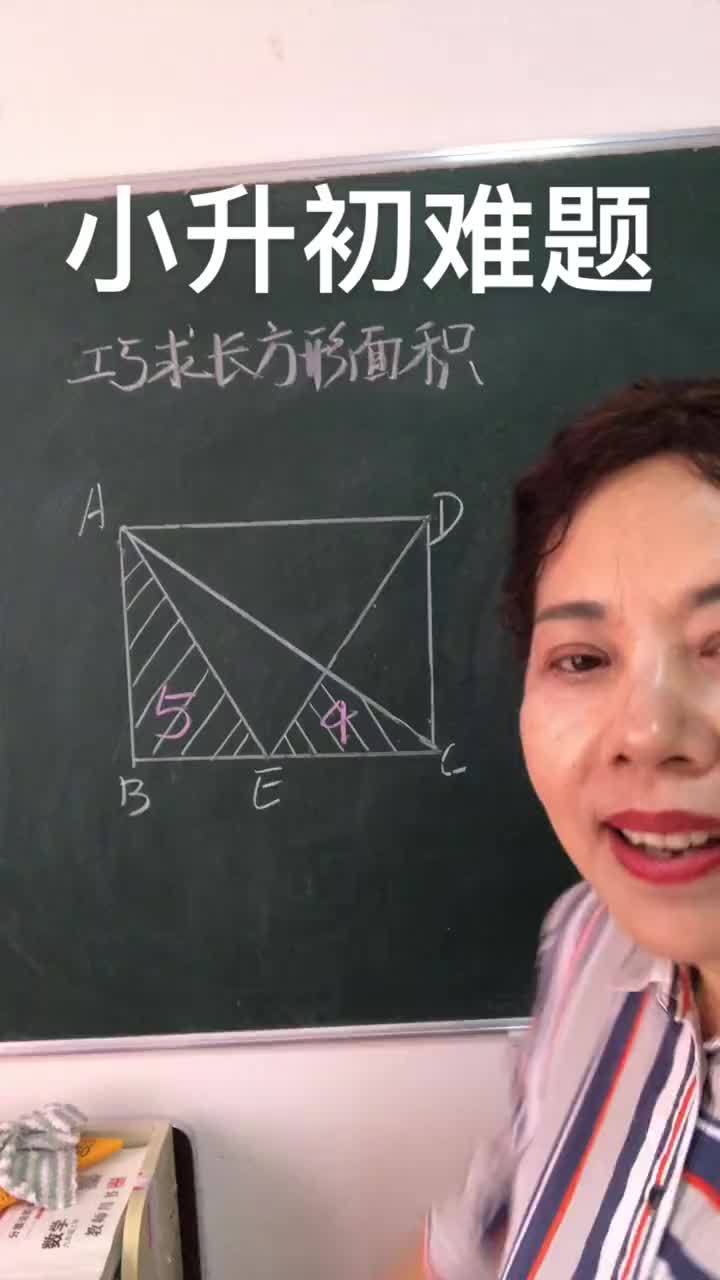 小升初难题
巧求长方形面积
A
D
5
4
B
E
C
数学
教师用书